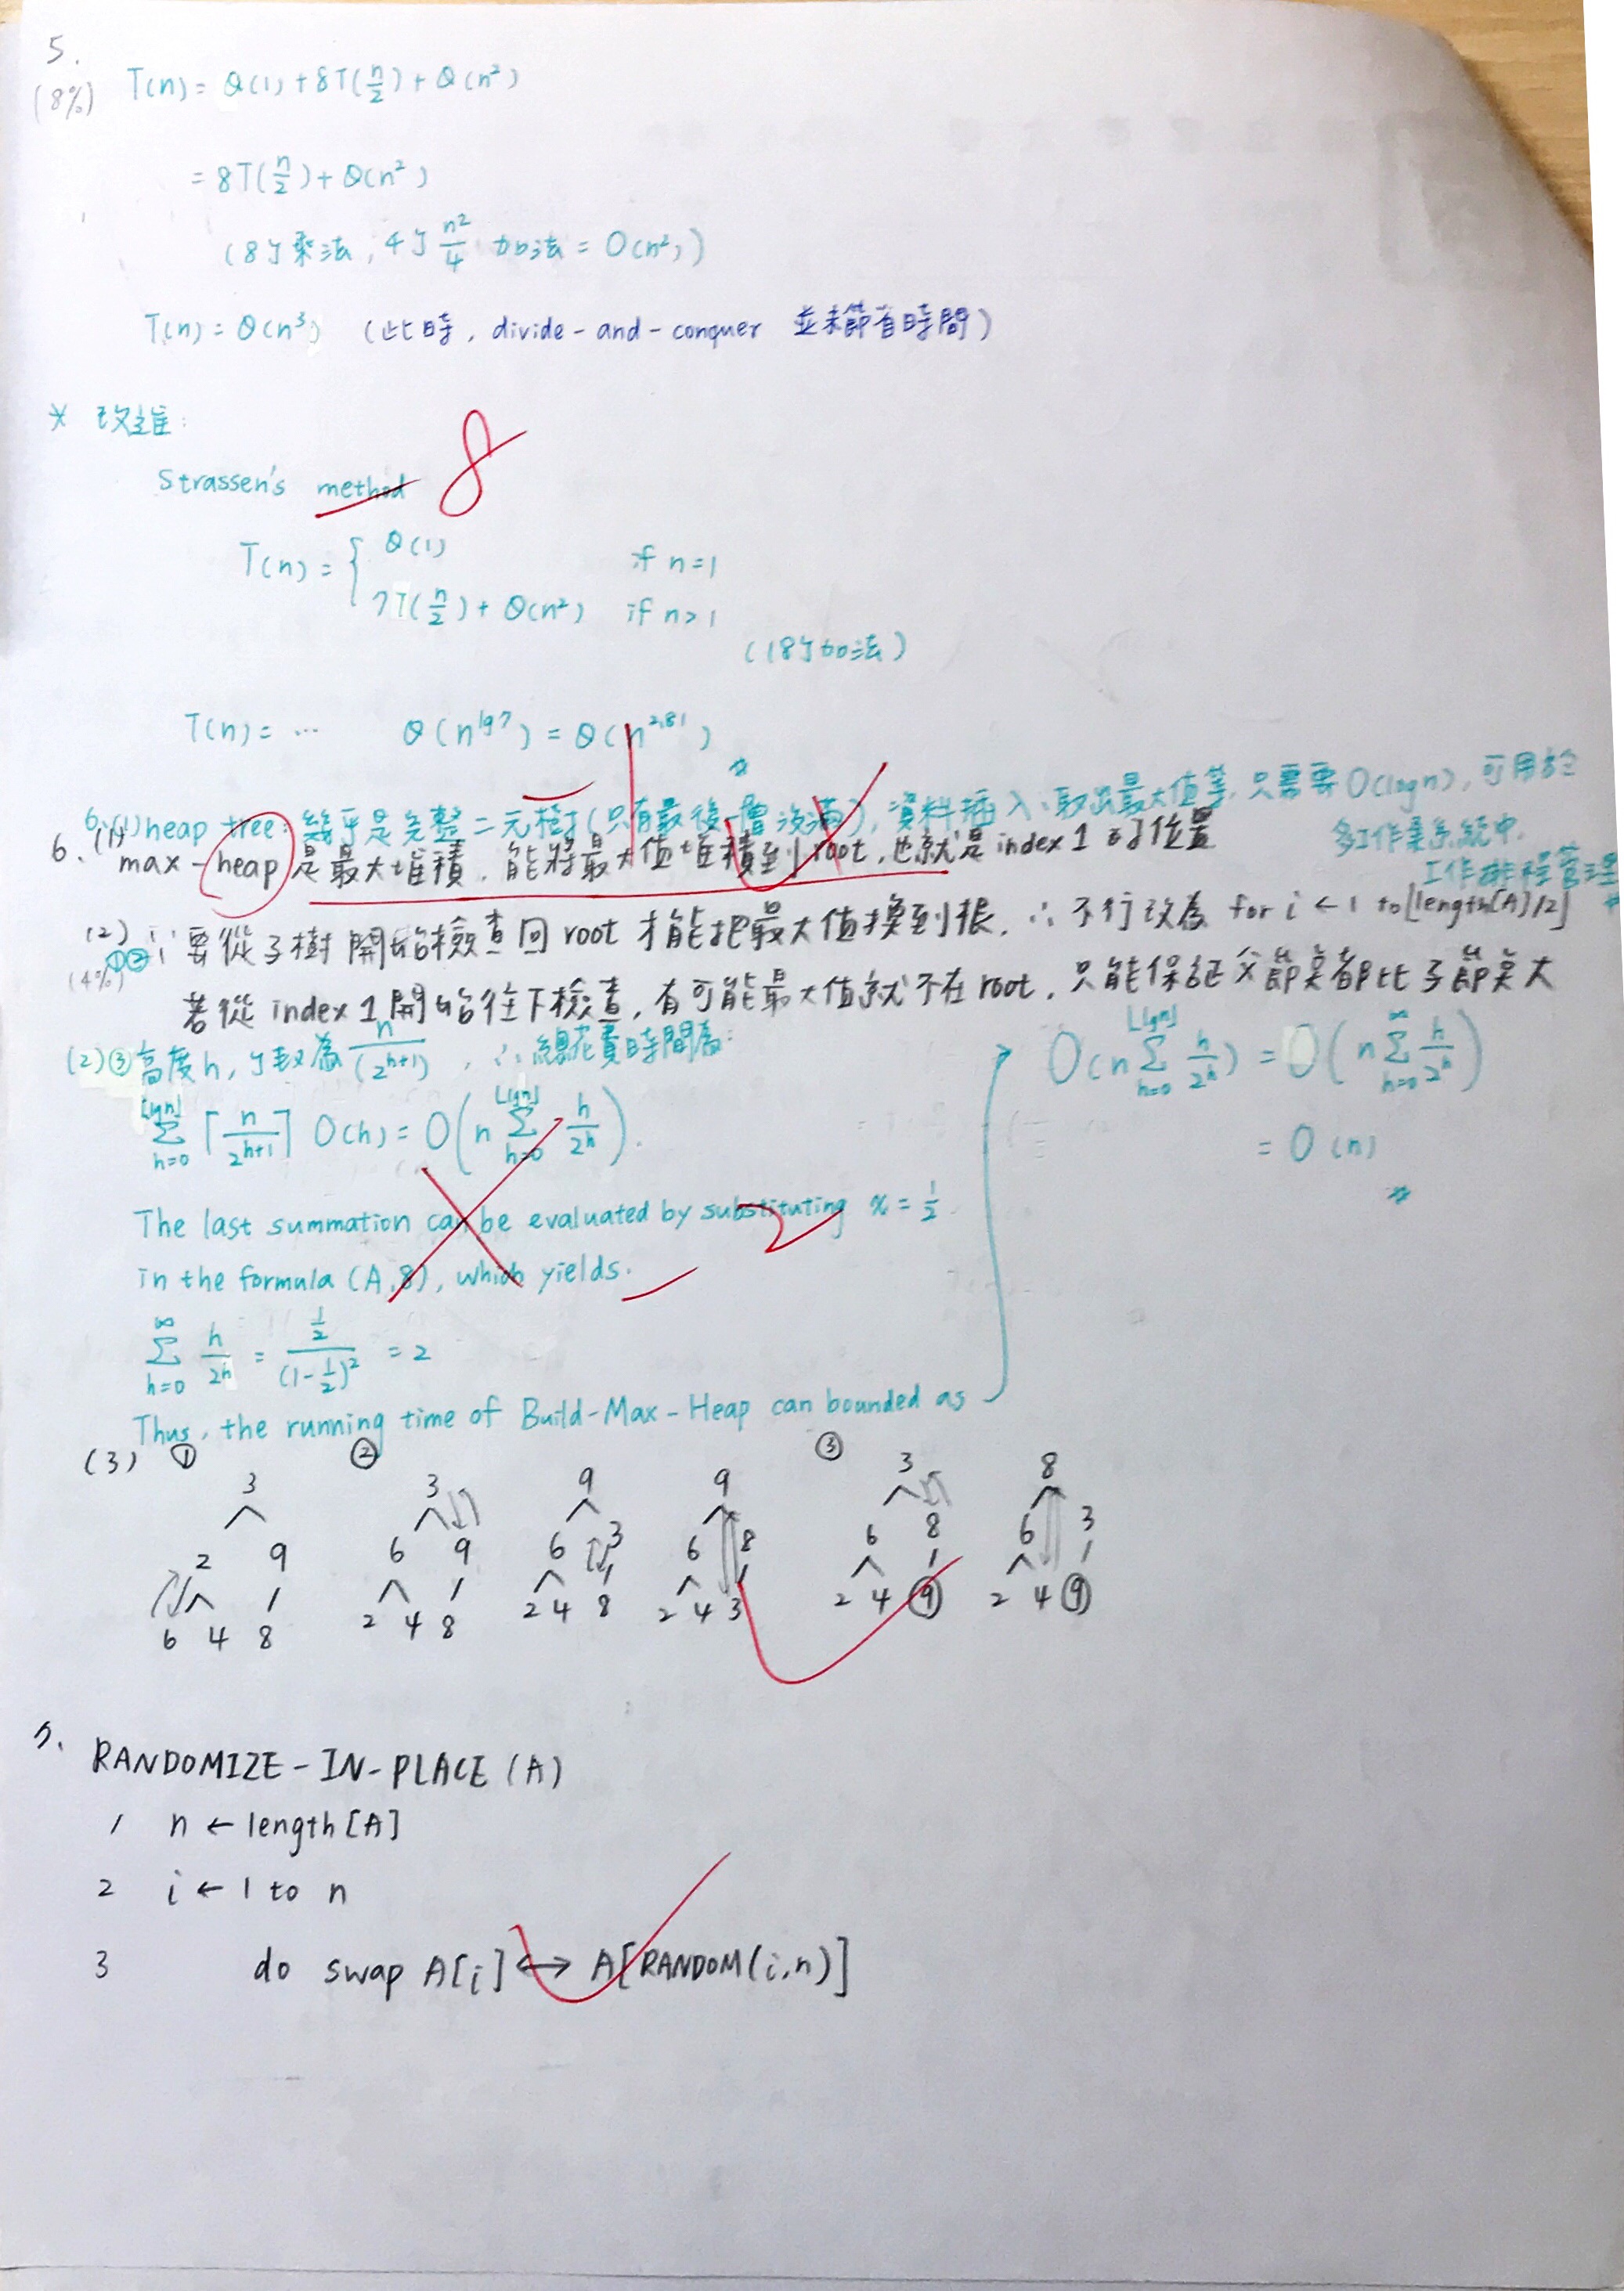 5.
(8%) T(n) = Θ(1) + 8T(n/2) + Θ(n²)
= 8T(n/2) + Θ(n²)
(8个乘法, 4个 n²/4 加法 = O(n²))
T(n) = Θ(n³) (此時, divide-and-conquer 並未節省時間)
* 改進:
Strassen's method 8
T(n) = { Θ(1) if n=1
7T(n/2) + Θ(n²) if n>1
(18个加法)
T(n) = … Θ(n^lg7) = Θ(n^2.81)
6.(1) heap tree: 幾乎是完整二元樹(只有最後一層沒滿), 資料插入、取出最大值等, 只需要O(logn), 可用於
多工作業系統中,
工作排程管理
6. (1) max-heap 是最大堆積, 能將最大值堆積到root, 也就是 index 1 的位置
(2) ①② ∵ 要從子樹開始檢查回 root 才能把最大值換到根, ∴ 不行改為 for i ← 1 to ⌊length[A]/2⌋
(4%)
若從 index 1 開始往下檢查, 有可能最大值就不在 root, 只能保証父節點都比子節點大
(2)③ 高度h, 个数為 n/(2^h+1), ∴ 總花費時間為:
Σ_{h=0}^{⌊lgn⌋} ⌈n/2^{h+1}⌉ O(h) = O(n Σ_{h=0}^{⌊lgn⌋} h/2^h).
The last summation can be evaluated by substituting x = 1/2
in the formula (A.8), which yields.
Σ_{h=0}^{∞} h/2^h = (1/2)/(1-1/2)² = 2
Thus, the running time of Build-Max-Heap can bounded as
O(n Σ_{h=0}^{⌊lgn⌋} h/2^h) = O(n Σ_{h=0}^{∞} h/2^h)
= O(n)
(3) ① ② ③
3 3 9 9 3 8
2 9 6 9 6 3 6 8 6 8 6 3
6 4 8 2 4 8 2 4 8 2 4 3 2 4 9 2 4 9
7.
RANDOMIZE-IN-PLACE(A)
1 n ← length[A]
2 i ← 1 to n
3 do swap A[i] ↔ A[RANDOM(i,n)]